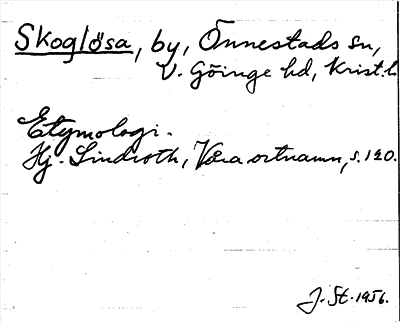 Skoglösa, by, Önnestads sn,
V. Göinge hd, Krist.l.
Etymologi.
Hj. Lindroth, Våra ortnamn, s. 120.
J. St. 1956.